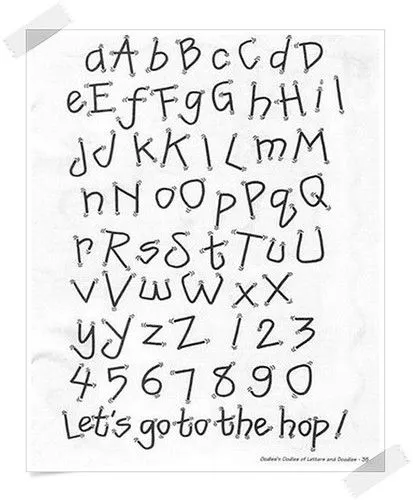 aAbBcCdD
eEfFgGhHiI
jJkKlLmM
nNoOpPqQ
rRsStTuU
vVwWxX
yYzZ 123
4567890
Let's go to the hop!
Oodles's Oodles of Letters and Doodles - 35